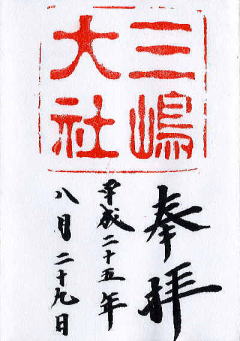 三嶋
大社
奉拝
平成二十五年
八月二十九日